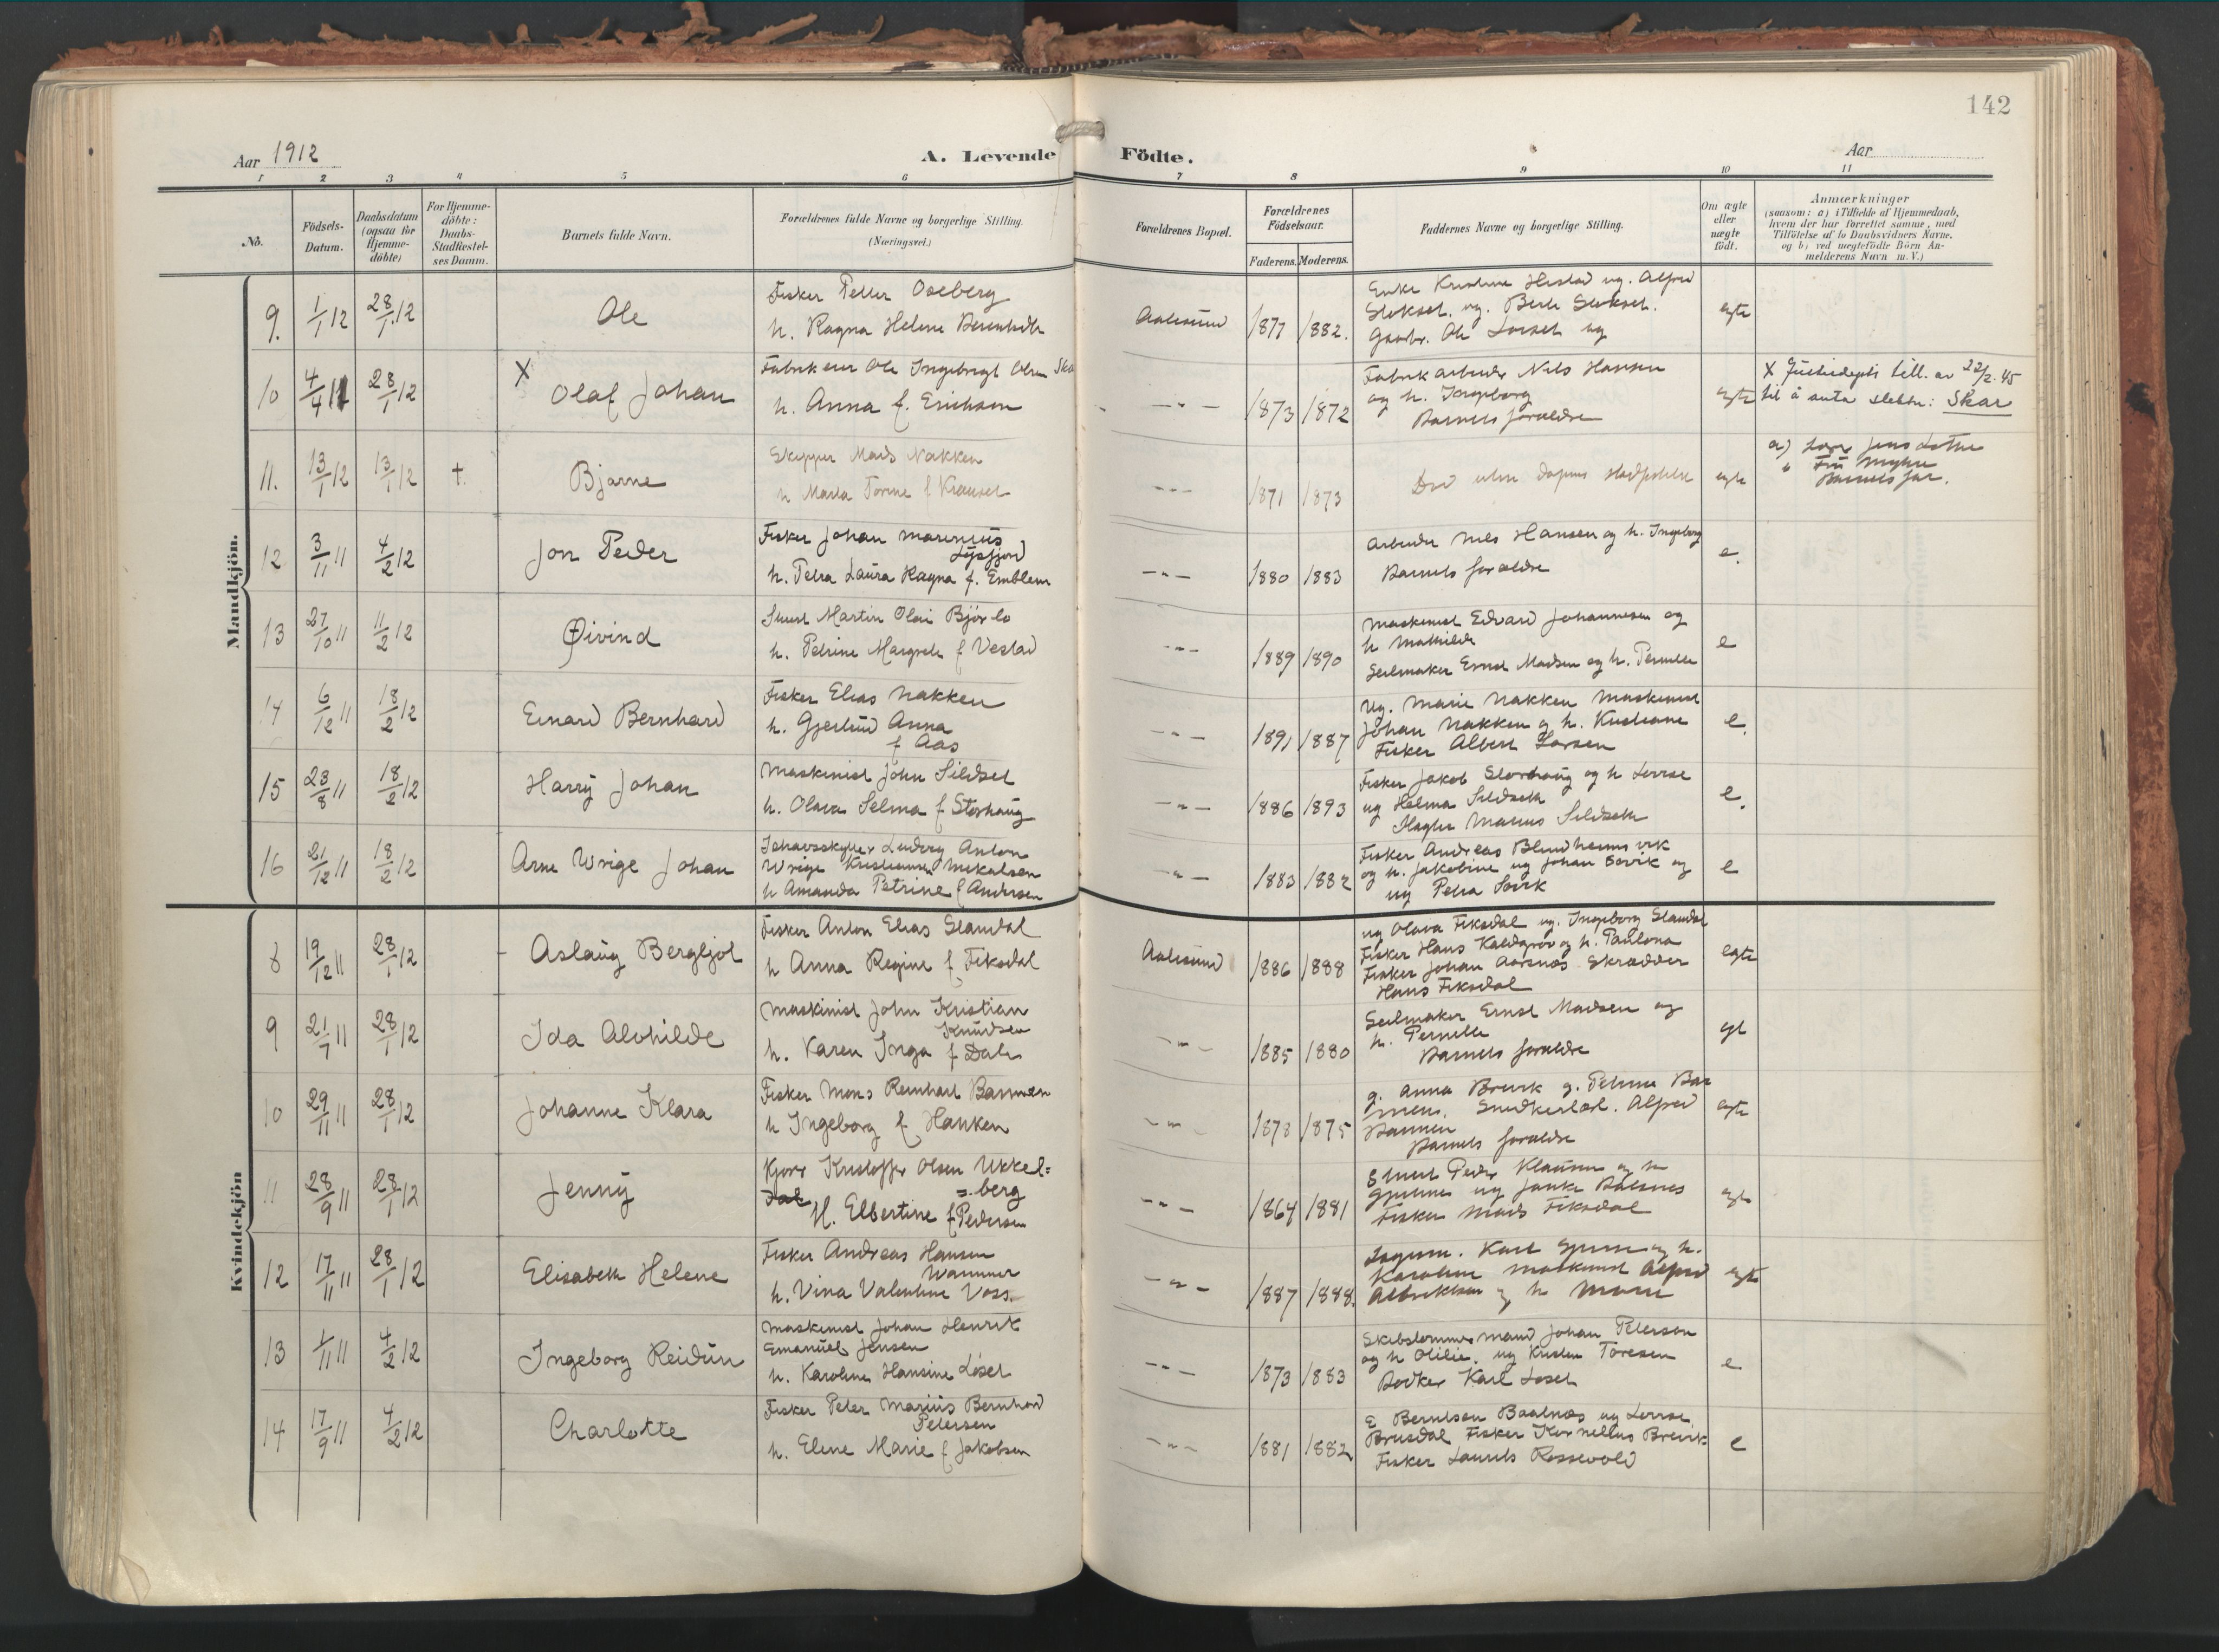 142
Aar 1912
A. Levende Födte.
Aar
1 2 3 4 5 6 7 8 9 10 11
No.
Födsels-Datum.
Daabsdatum (ogsaa for Hjemme-döbte)
For Hjemme-döbte: Daabs-Stadfæstel-ses Datum.
Barnets fulde Navn.
Forældrenes fulde Navne og borgerlige Stilling. (Næringsvei.)
Forældrenes Bopæl.
Forældrenes Födselsaar.
Faderens. Moderens.
Faddernes Navne og borgerlige Stilling.
Om ægte eller uægte födt.
Anmærkninger
(saasom: a) i Tilfælde af Hjemmedaab, hvem der har forrettet samme, med Tilföielse af to Daabsvidners Navne, og b) ved uægtefödte Börn An-melderens Navn m.V.)
Mandkjön.
9. 1/1 12 28/1 12 Ole
Fisker Petter Oseberg
h. Ragna Helene
Aalesund 1877 1882.
Enke Kristine ug. Alfred
Slokset. ug. Berte Slokset.
Gaarbr. Ole ug
egte
10 4/4 11 28/1 12 X Olaf Johan
Fabrikeier Ole Ingebrigt Olsen
h. Anna f. Erichsen
- " - 1873 1872
Fabrikarbeider Nils Hansen
og h. Ingeborg
Barnets forældre
egte
X Justisdepts till. av 22/2. 45
til å anta slektsn: Skar
11. 13/1 12 13/1 12 † Bjarne
Skipper Mads Nakken
h Marta f
- " - 1871 1873
Död uden daapens
egte
a)
" Fru Myhre
Barnets far.
12 3/11 11 4/2 12 Jon Peder
Fisker Johan Marenius
Lysfjord
h. Petra Laura Ragna f. Emblem
- " - 1880 1883
Arbeider Nils Hansen og h. Ingeborg
Barnets forældre
e.
13 27/10 11 11/2 12 Øivind
Martin Olai Björlo
h. Petrine Margrete f Vestad
- " - 1889 1890
Maskinist Edvard Johannesen og
h Mathilde
Seilmaker Ernst Madsen og h. Pernille
e
14 6/12 11 18/2 12 Einard Bernhard
Fisker Elias Nakken
h. Gjertrud Anna
f Aas
- " - 1891 1887
Ug. Marie Nakken Maskinist
Johan Nakken og h. Kristiane
Fisker Albert Larsen
e.
15 23/8 11 18/2 12 Harry Johan
Maskinist John Sildset
h. Olava Selma f Storhaug
- " - 1886 1893
Fisker Jakob Storhaug og h Lovise
ug Helma Sildseth
Marius Sildseth
e.
16 21/12 11 18/2 12 Arne Wrige Johan
Ishavsskipper Ludvig Anton
Wrige Mikalsen
h Amanda Petrine f Andersen
- " - 1883 1882
Fisker Andreas Blindheimsvik
og h. Jakobine ug Johan Sövik og
ug Petra Sövik
e
Kvindekjön
8 19/12 11 28/1 12 - Aslaug Bergljot
Fisker Anton Elias Slamdal
h Anna Regine f Fiksdal
Aalesund 1886 1888
ug Olava Fiksdal ug. Ingeborg Slamdal
Fisker Hans og h. Paulona
Fisker Johan Aarsnes Skrædder
Hans Fiksdal
egte
9 21/7 11 28/1 12 Ida Alvhilde
Maskinist John Kristian
Knudsen
h. Karen Inga f Dale
- " - 1885 1880
Seilmaker Ernst Madsen og
h. Pernille
Barnets forældre
gt
10 29/11 11 28/1 12 Johanne Klara
Fisker Mons Reinhart Barmen
h Ingeborg f Hanken
- " - 1878 1875
g. Anna Brevik g. Petrine Bar
mens. Snedkerlærl. Alfred
Barmen
Barnets forældre
egte
11 28/9 11 28/1 12 Jenny
Kristoffer Olsen Ukkel=
=berg
H. Elbertine f Pedersen
- " - 1864 1881
Peder Klausen og h
ug
Fisker Mads Fiksdal
egte
12 17/11 11 28/1 12 Elisabeth Helene
Fisker Andreas Hansen
h. Vina Valentine Voss.
- " - 1887 1888.
Karl og h.
Karoline Maskinist Alfred
og h Marie
egte
13 1/11 11 4/2 12 Ingeborg Reidun
Maskinist Johan Henrik
Emanuel Jensen
h. Karoline Hansine Löset
- " - 1873 1883
Skibstömmermand Johan Petersen
og h Otilie. ug Kristen Toresen
Bödker Karl Löset
e
14 17/9 11 4/2 12 Charlotte
Fisker Peter Marius Bernhard
Petersen
h. Eline Marie f Jakobsen
- " - 1881 1882
E Berntsen Baalnes ug Lovise
Brusdal Fisker Kornelius Brevik
Fisker Laurits Rossevold
e